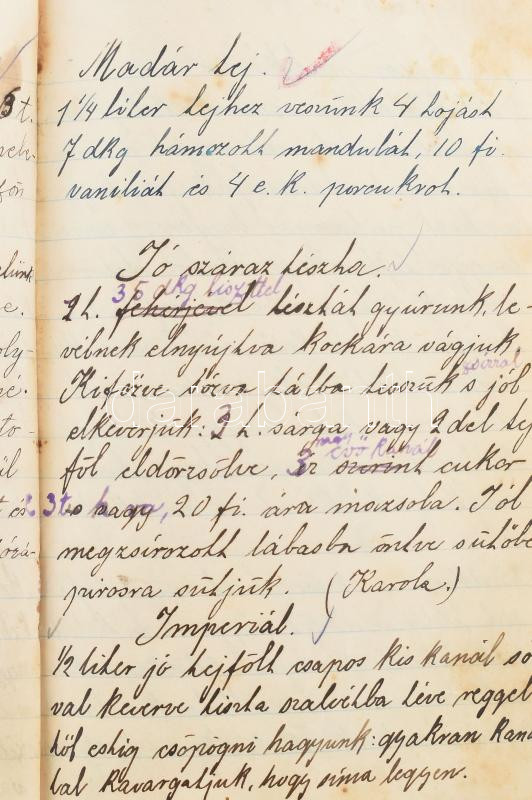 Madár tej.
1 1/4 liter tejhez veszünk 4 tojást
7 dkg hámozott mandulát, 10 fi.
vaniliát és 4 e. k. porcukrot.
Jó száraz tészta.
35 dkg liszttel
2 t. fehérjével tésztát gyúrunk, le-
vélnek elnyújtva kockára vágjuk.
zsírral
Kifőzve tálba tesszük s jól
elkeverjük: 3 t. sárga, vagy 2 del tej
föl eldörzsölve,
evő kanál
cukor
20 fi. ára mazsola. Jól
megzsírozott lábasba öntve sütőbe
pirosra sütjük. (Karola.)
Imperiál.
1/2 liter jó tejfölt csapos kis kanál só
val keverve tiszta szalvétba téve reggel
től estig csöpögni hagyjunk: gyakran kaná
lal kavargatjuk, hogy sima legyen.
darabanth